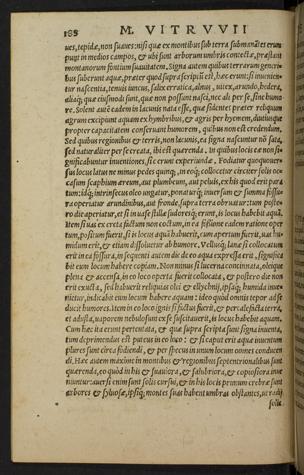 188 M. VITRVVII
ues, tepida, non suaues: nisi quæ ex montibus sub terra submanãtes erum
punt in medios campos, & ubi sunt arborum umbris contectæ, præstant
montanorum fontium suauitatem. Signa autem quibus terrarum generi-
bus suberunt aquæ, præter quod supra scriptũ est, hæc erunt: si inuenien-
tur nascentia, tenuis iuncus, salix erratica, alnus, uitex, arundo, hedera,
aliaq; quæ eiusmodi sunt, quæ non possunt nasci, nec ali per se, sine humo-
re. Solent autē eadem in lacunis nata esse, quæ sidentes præter reliquum
agrum excipiunt aquam ex hymbribus, & agris per hyemem, diutiusque
propter capacitatem conseruant humorem, quibus non est credendum.
Sed quibus regionibus & terris, non lacunis, ea signa nascuntur nõ sata,
sed naturaliter per se creata, ibi est quærenda. In quibus locis eæ non si-
gnificabuntur inuentiones, sic erunt experiundæ. Fodiatur quoquouer-
sus locus latus ne minus pedes quinq;, in eoq; collocetur circiter solis oc-
casum scaphium æreum, aut plumbeum, aut peluis, ex his quod erit para
tum: idq; intrinsecus oleo ungatur, ponatur q; inuersum, & summa fossu-
ra operiatur arundinibus, aut fronde, supra terra obruatur: tum poste-
ro die aperiatur, et si in uase stillæ sudoresq; erunt, is locus habebit aquã.
Item si uas ex creta factum non coctum, in ea fossione eadem ratione oper
tum, positum fuerit, si is locus aquã habuerit, cum apertum fuerit, uas hu-
midum erit, & etiam dissoluetur ab humore. Vellusq; lanæ si collocatum
erit in ea fossura, in sequenti autem die de eo aqua expressa erit, significa
bit eum locum habere copiam. Non minus si lucerna concinnata, oleique
plena & accensa, in eo loco operta fuerit collocata, & postero die non
erit exucta, sed habuerit reliquias olei & ellychnij, ipsaq; humida inue-
nietur, indicabit eum locum habere aquam: ideo quòd omnis tepor ad se
ducit humores. Item in eo loco ignis si factus fuerit, & percalefacta terra,
et adusta, uaporem nebulosum ex se suscitauerit, is locus habebit aquam.
Cum hæc ita erunt pertentata, & quæ supra scripta sunt signa inuenta,
tum deprimendus est puteus in eo loco: & si caput erit aquæ inuentum
plures sunt circa fodiendi, & per specus in unum locum omnes conducen
di. Hæc autem maxime in montibus & regionibus septentrionalibus sunt
quærenda, eo quòd in his & suauiora, & salubriora, & copiosiora inue
niuntur: auersi enim sunt solis cursui, & in his locis primum crebræ sunt
arbores & syluosæ, ipsiq; montes suas habent umbras obstantes, ut radij
solis